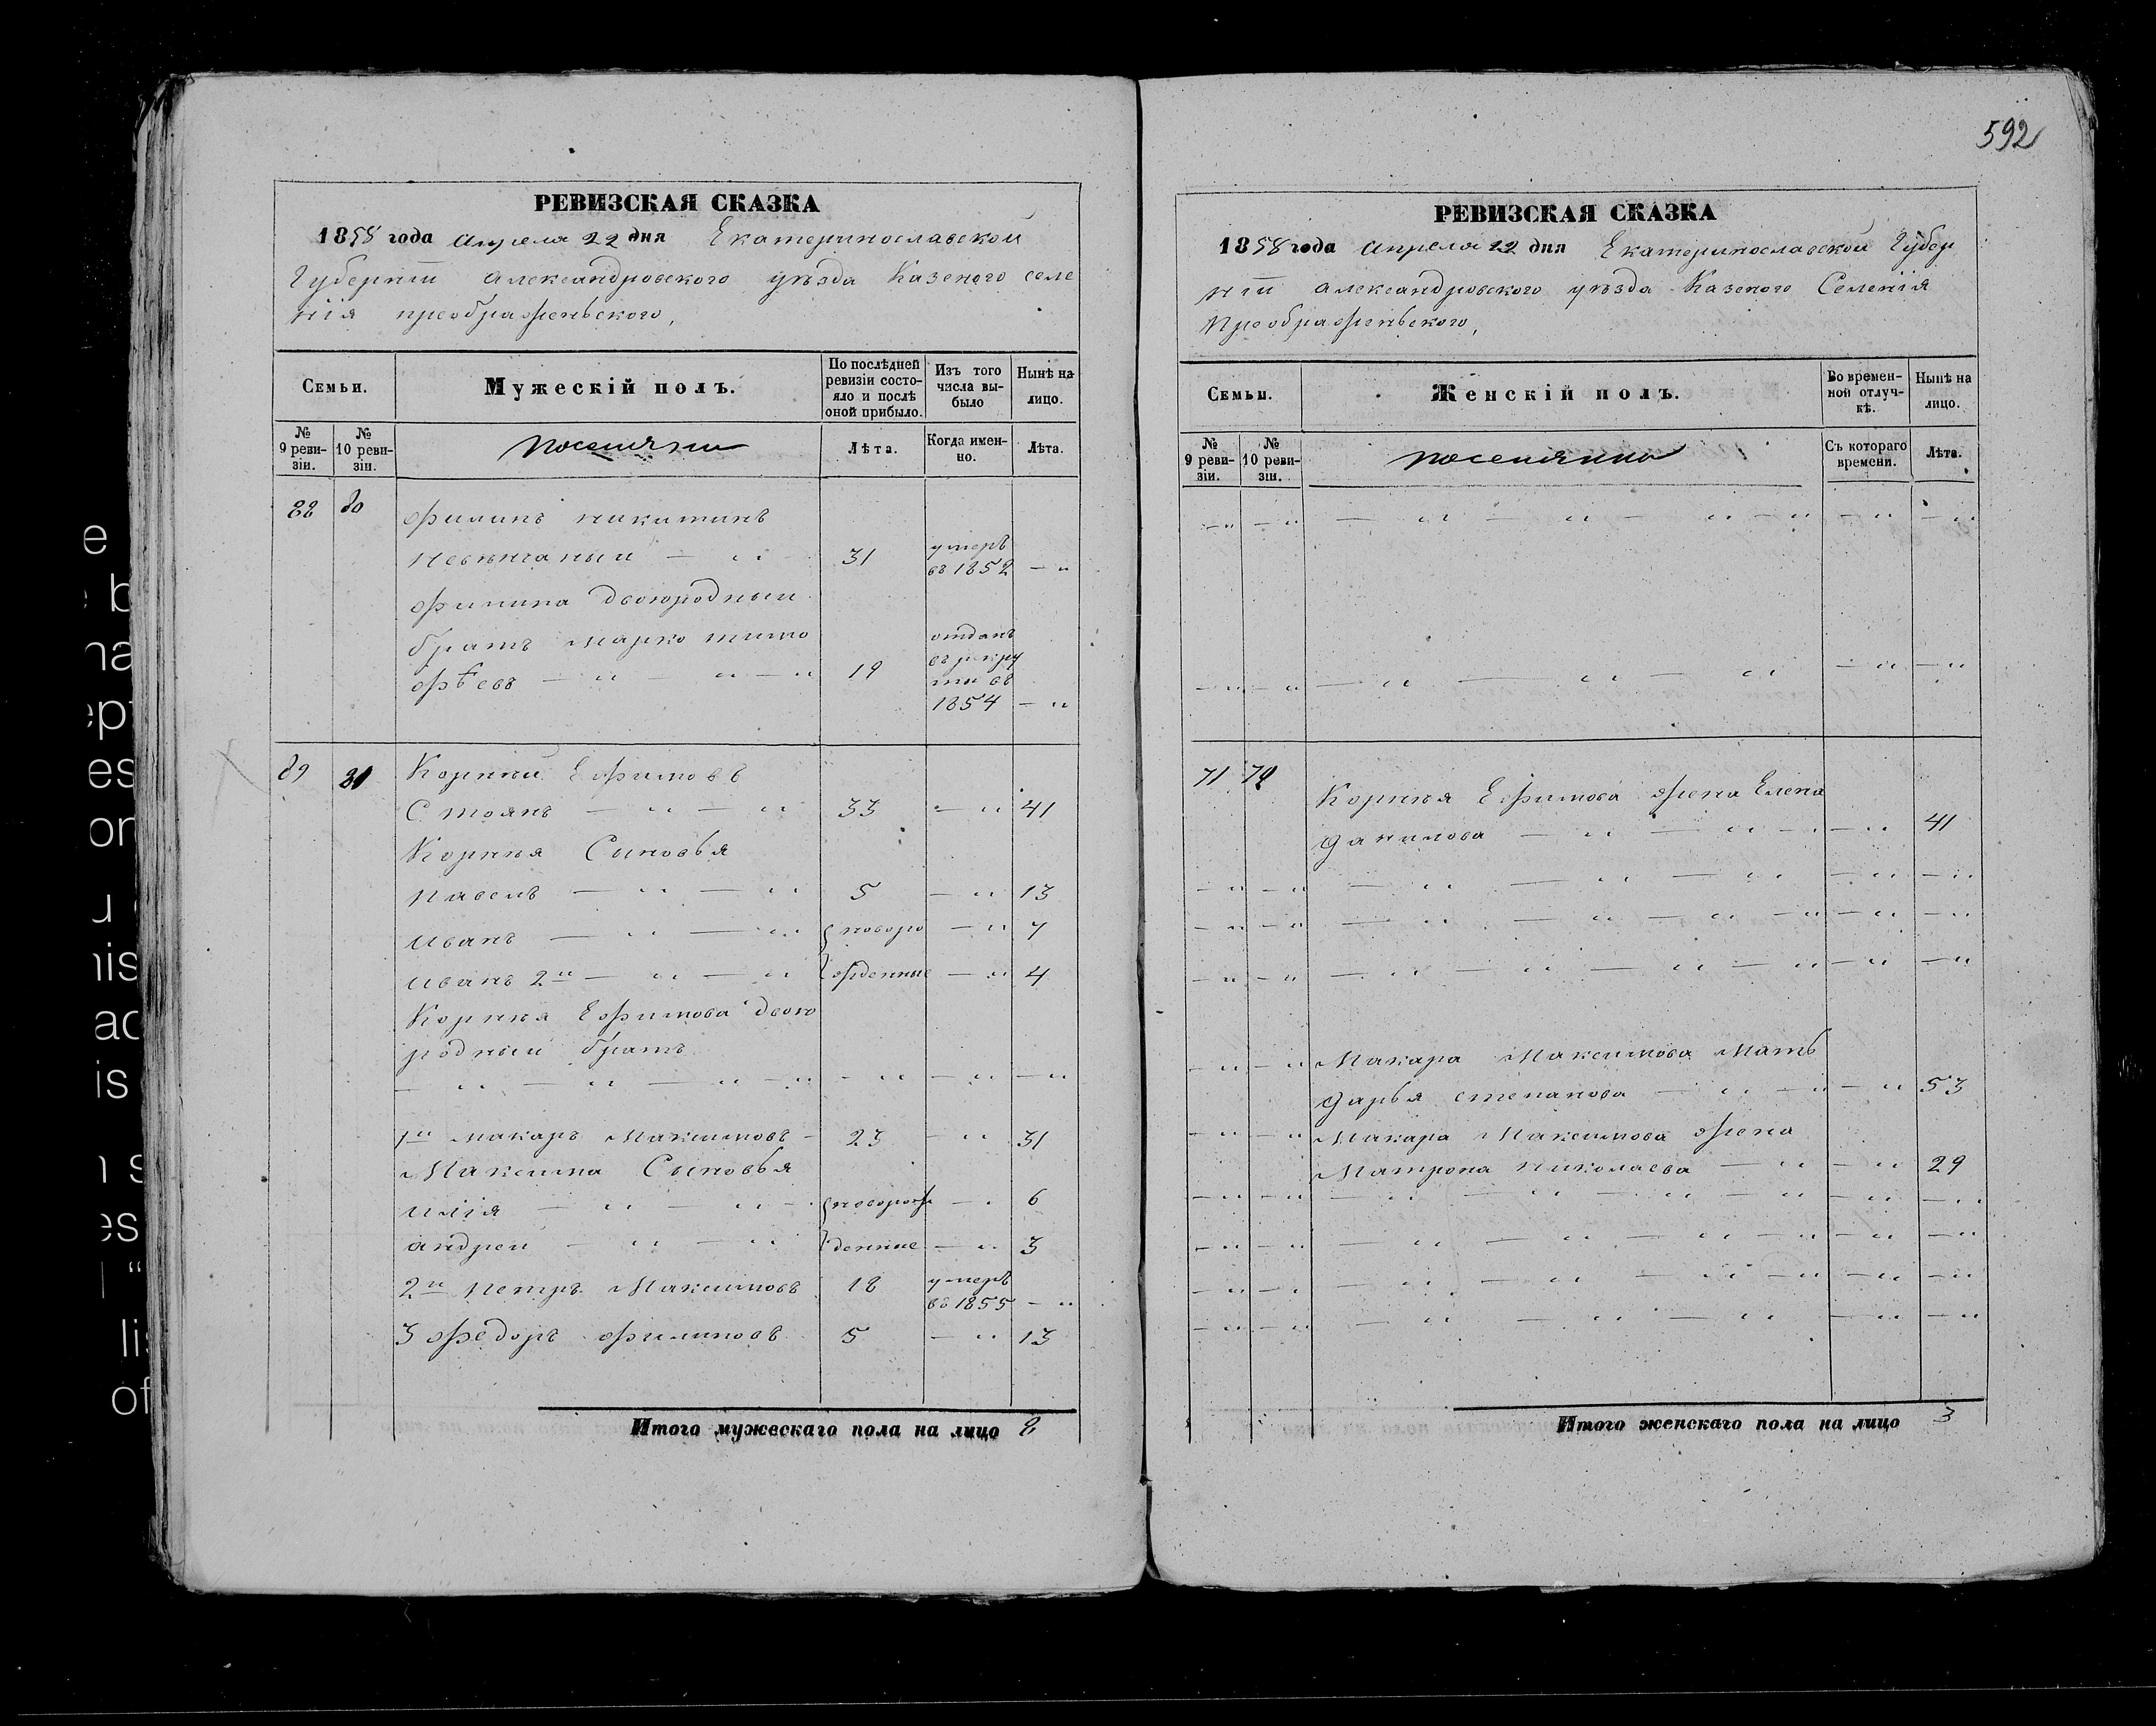 592
РЕВИЗСКАЯ СКАЗКА
1858 года Апреля 22 дня Екатеринославской
Губернiи Александровского уѣзда Казеного селе
нiя преображеньского,
Семьи.
Мужескiй полъ.
По послѣдней ревизiи состояло и послѣ оной прибыло.
Изъ того числа выбыло
Нынѣ на лицо.
№ 9 ревизiи.
№ 10 ревизiи.
поселяни
Лѣта.
Когда именно.
Лѣта.
88 80 Филипъ никитинъ
невѣнчаный — " 31 умеръ въ 1852 — "
Филипа двоюродный
братъ Марко тимо
фѣевъ — " — " — " 19 отданъ въ рекрути въ 1854 — "
89 81 Корнѣй Ефимовъ
Стоянъ — " — " 33 — " 41
Корнѣя Сыновья
Павелъ — " — " 5 — " 13
Иванъ — " — " новоро — " 7
Иванъ 2й — " — " жденные — " 4
Корнѣя Ефимова двою
родный братъ
— " — " — " — " — " — " — "
1й Макаръ Максимовъ — 23 — " 31
Максима Сыновья
Илiя — " — " — новорож — " 6
андрей — " — " денные — " 3
2й Петръ Максимовъ 18 умеръ въ 1855 — "
3 Федоръ Филиповъ 5 — " 13
Итого мужескаго пола на лицо 8
РЕВИЗСКАЯ СКАЗКА
1858 года Апреля 22 дня Екатеринославской Губер
нiи Александровского уѣзда Казеного Селенiя
Преображеньского,
Семьи.
Женскiй полъ.
Во временной отлучкѣ.
Нынѣ на лицо.
№ 9 ревизiи.
№ 10 ревизiи.
поселянки
Съ котораго времени.
Лѣта.
— " — " — " — " — " — " — " — "
— " — " — " — " — " — " — "
71 72 Корнѣя Ефимова жена Елена
Данилова — " — " — — " 41
— " — " — " — " — " — " — "
— " — " — " — " — " — " — " — "
— " — " — " — " — " — " — " — "
— " — " Макара Максимова Мать
Дарья степанова — " — " — " 53
— " — " Макара Максимова жена
Матрона николаева — " — " 29
— " — " — " — " — " — " — " — "
— " — " — " — " — " — " — " — "
— " — " — " — " — " — " — " — "
— " — " — " — " — " — " — "
Итого женскаго пола на лицо 3